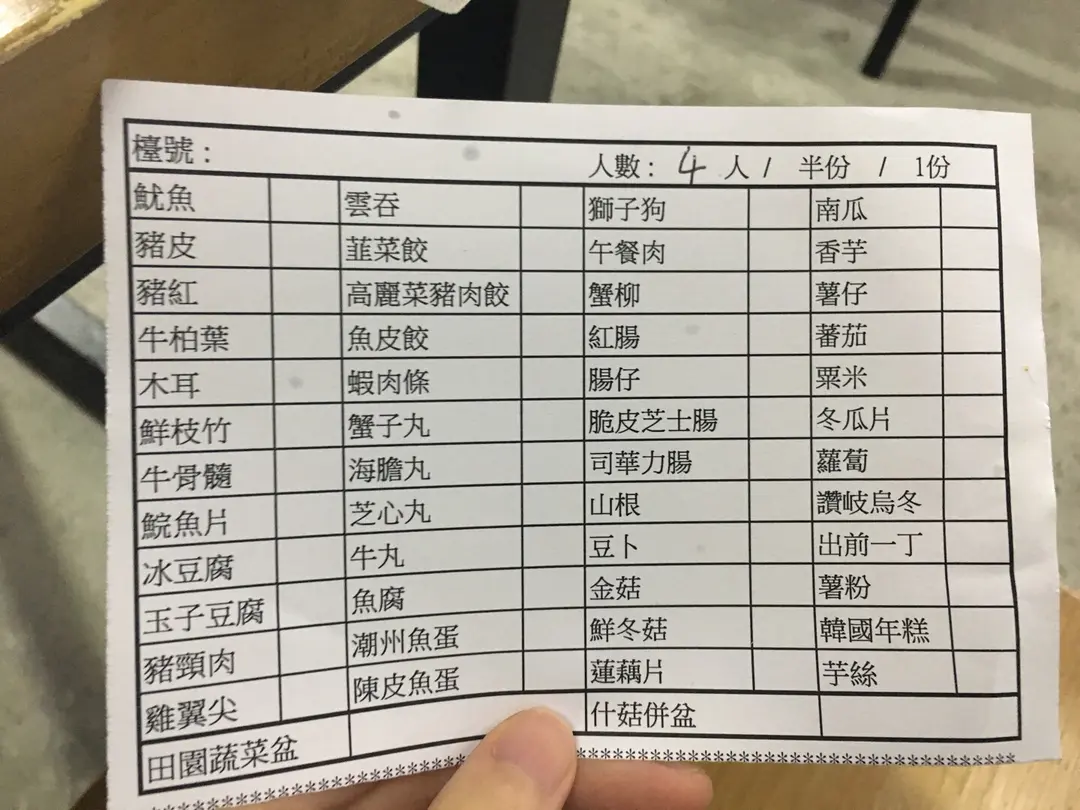 檯號： 人數：4 人 / 半份 / 1份
魷魚 雲吞 獅子狗 南瓜
豬皮 韮菜餃 午餐肉 香芋
豬紅 高麗菜豬肉餃 蟹柳 薯仔
牛柏葉 魚皮餃 紅腸 蕃茄
木耳 蝦肉條 腸仔 粟米
鮮枝竹 蟹子丸 脆皮芝士腸 冬瓜片
牛骨髓 海膽丸 司華力腸 蘿蔔
鯇魚片 芝心丸 山根 讚岐烏冬
冰豆腐 牛丸 豆卜 出前一丁
玉子豆腐 魚腐 金菇 薯粉
豬頸肉 潮州魚蛋 鮮冬菇 韓國年糕
雞翼尖 陳皮魚蛋 蓮藕片 芋絲
田園蔬菜盆 什菇併盆